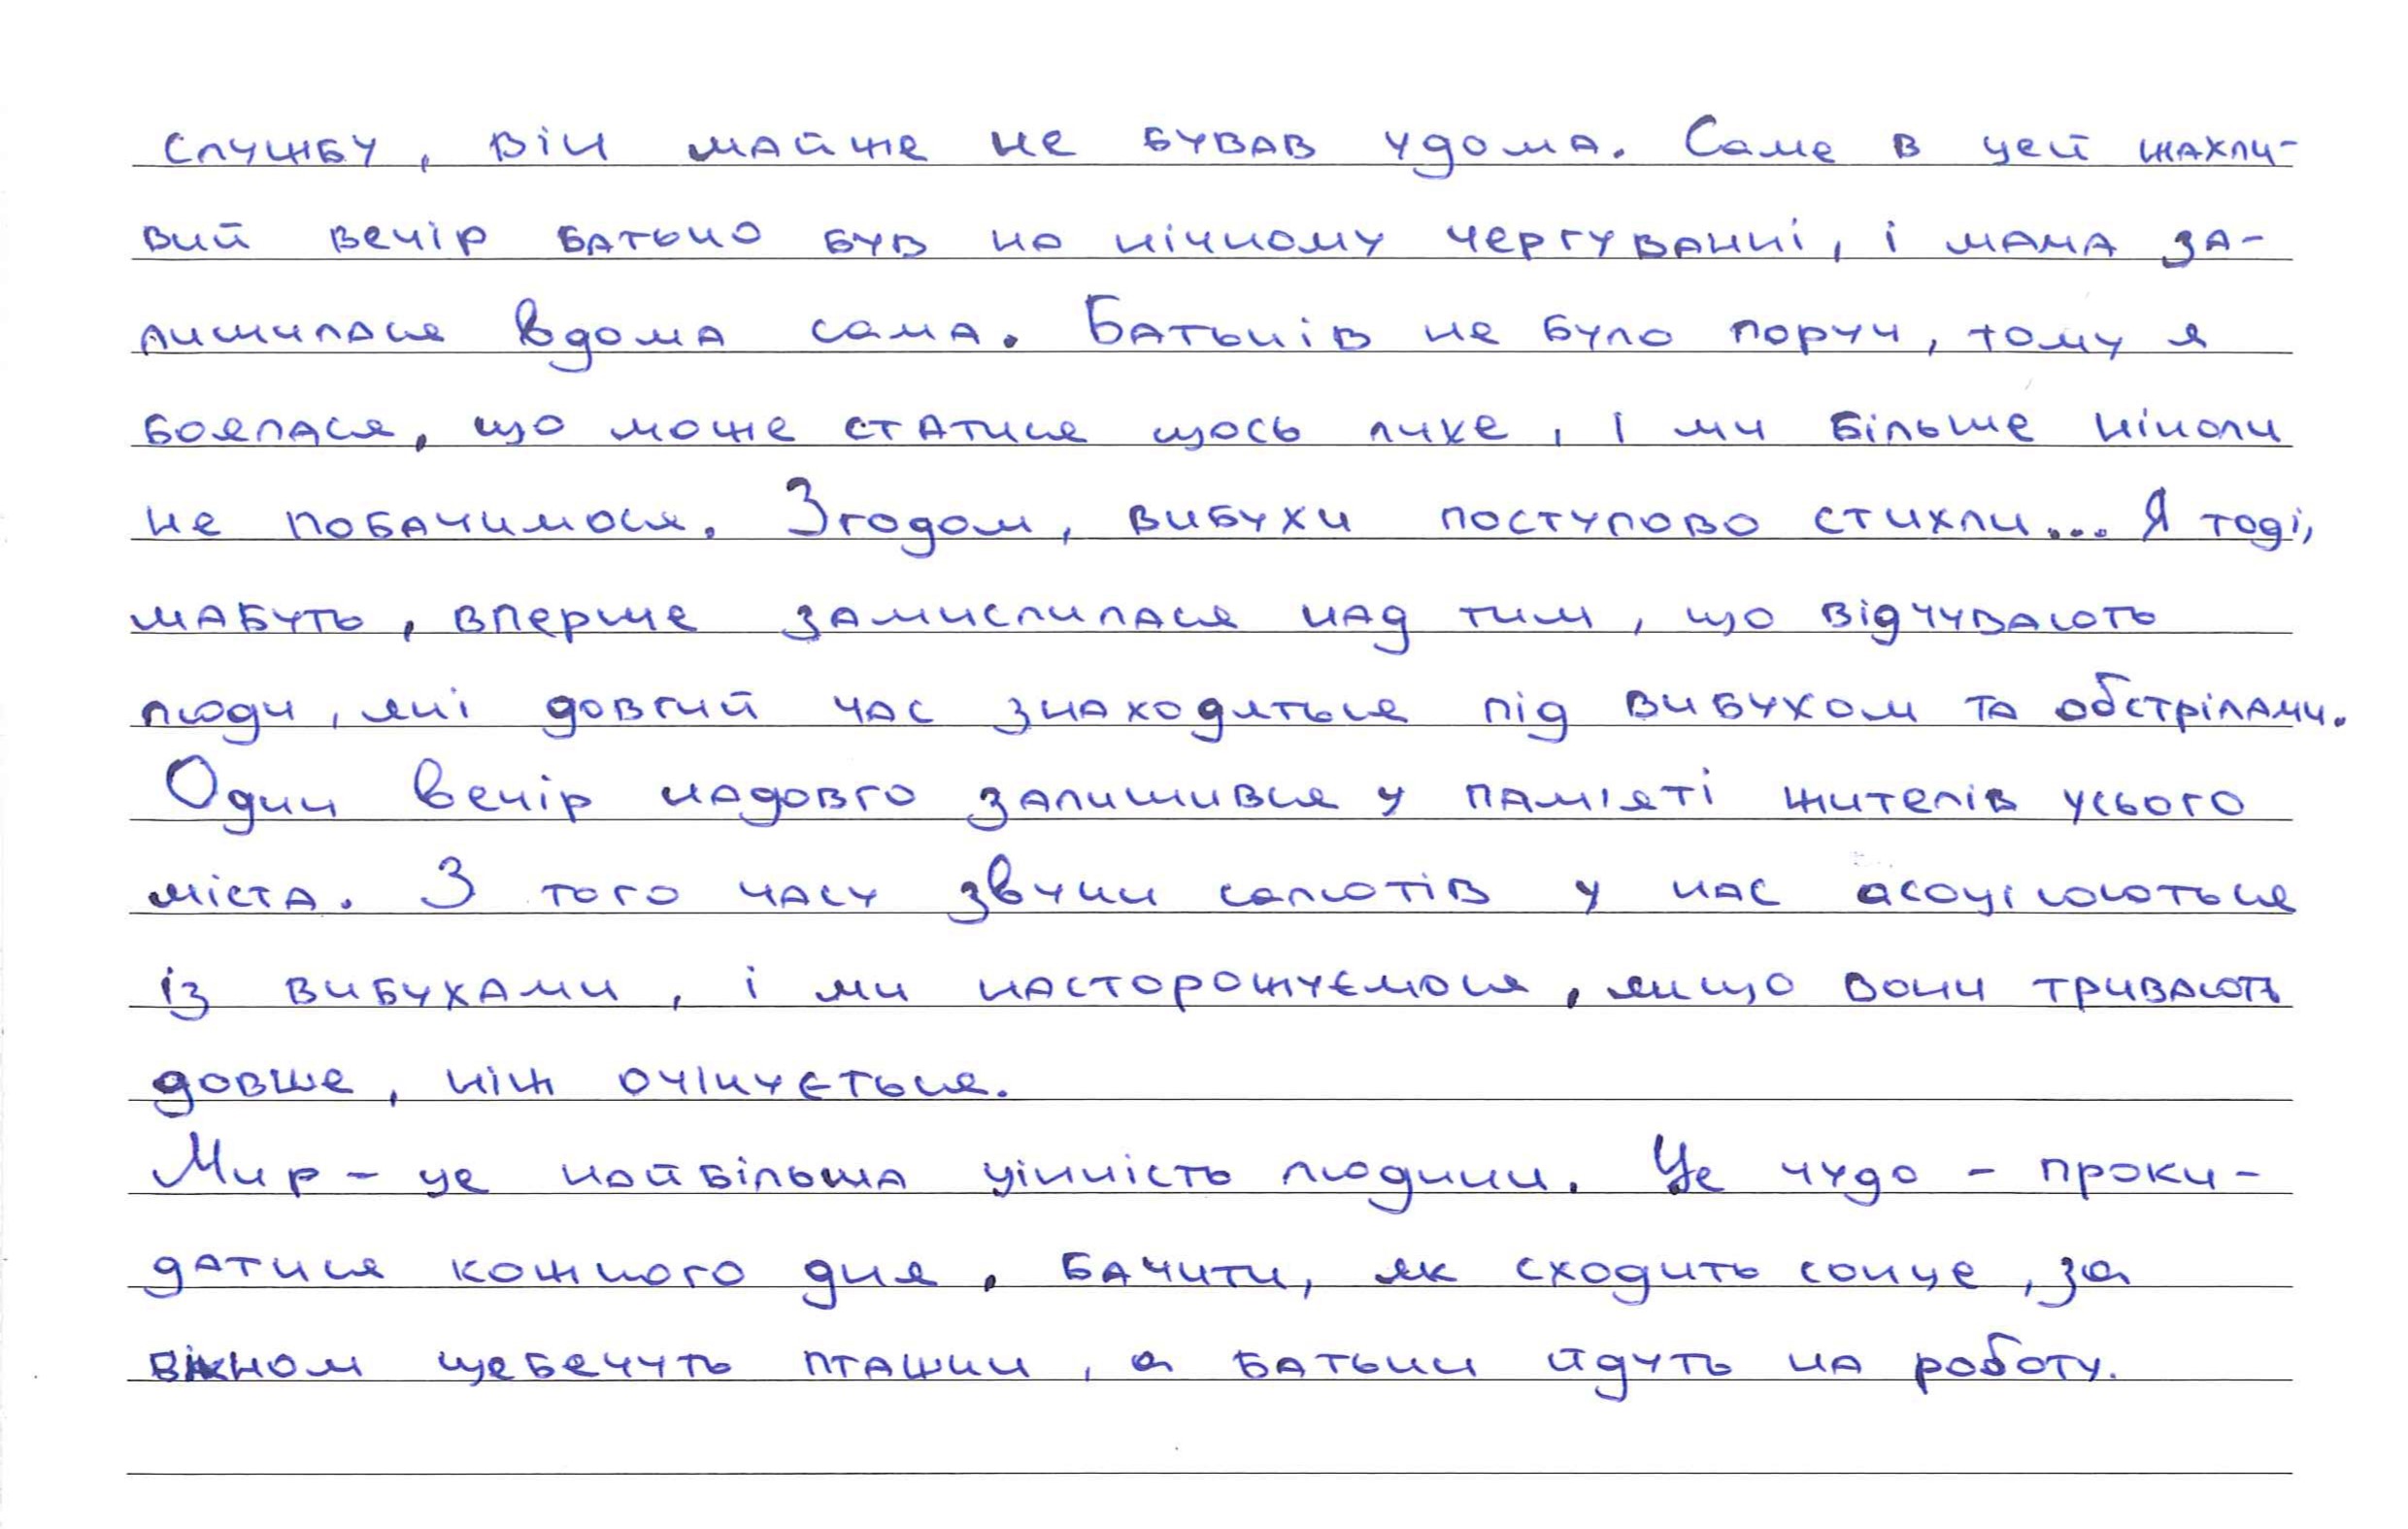 службу, він майже не бував удома. Саме в цей жахли-
вий вечір батько був на нічному чергуванні, і мама за-
лишилася вдома сама. Батьків не було поруч, тому я
боялася, що може статися щось лихе, і ми більше ніколи
не побачимося. Згодом, вибухи поступово стихли... Я тоді,
мабуть, вперше замислилася над тим, що відчувають
люди, які довгий час знаходяться під вибухом та обстрілами.
Один вечір надовго залишився у пам'яті жителів усього
міста. З того часу звуки салютів у нас асоціюються
із вибухами, і ми насторожуємося, якщо вони тривають
довше, ніж очікується.
Мир - це найбільша цінність людини. Це чудо - проки-
датися кожного дня, бачити, як сходить сонце, за
вікном щебечуть пташки, а батьки йдуть на роботу.